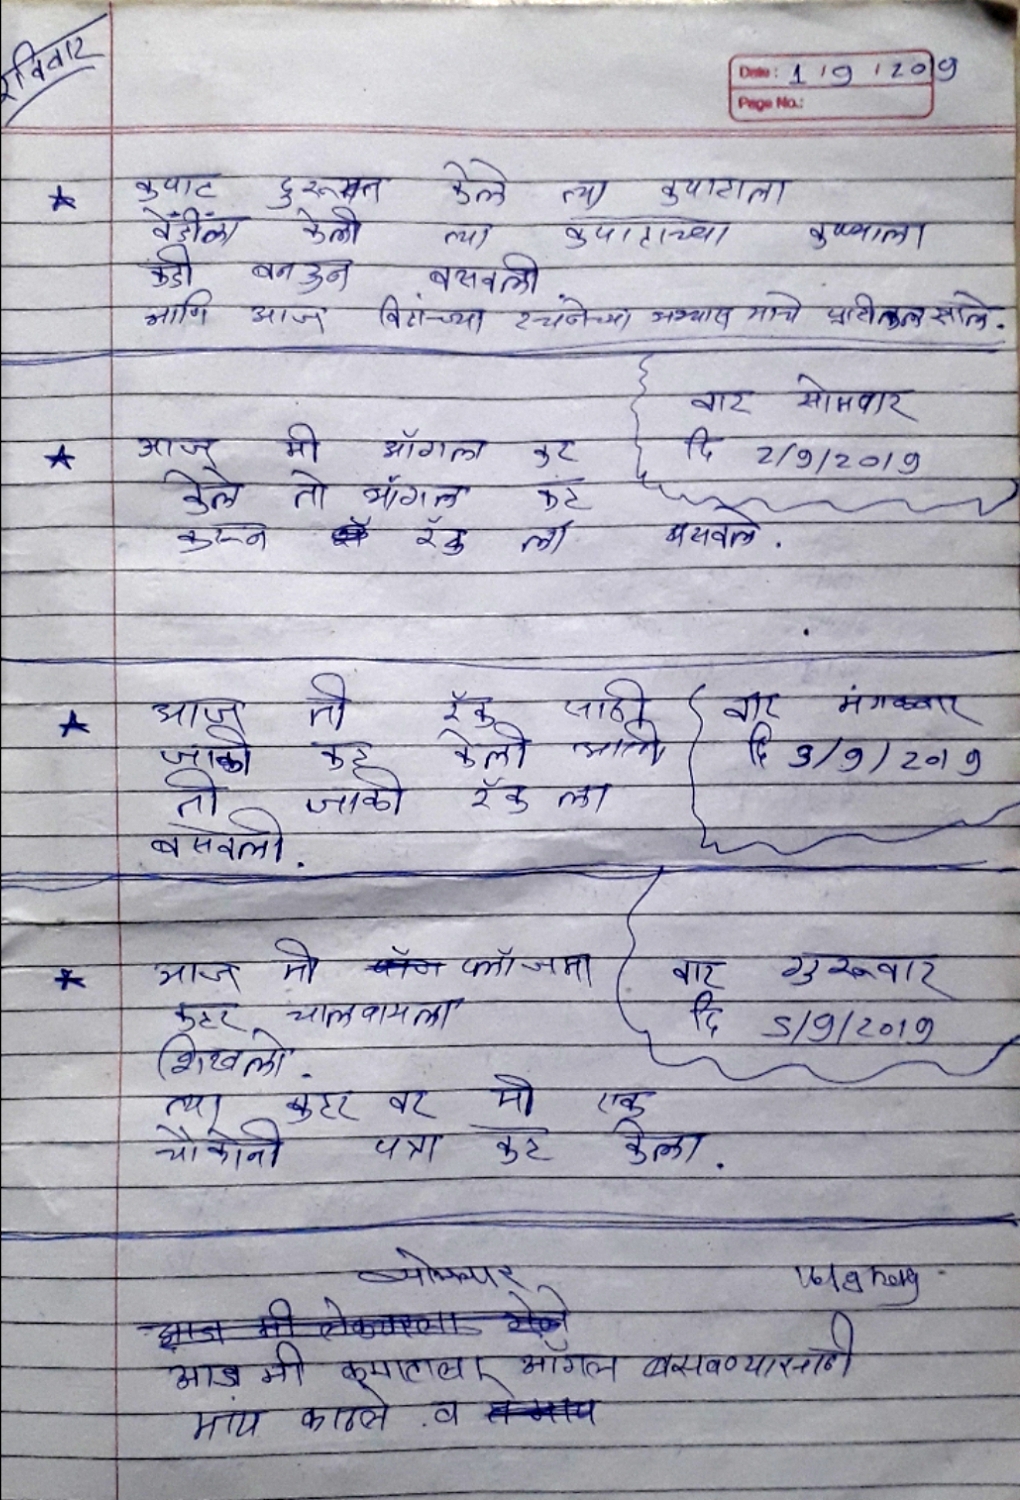 रविवार
Date: 1/9/2019
Page No.:
कपाट दुरूस्त केले त्या कपाटाला
वेंडींग केली त्या कपाटाच्या कप्प्याला
कडी बनउन बसवली
आणि आज विटांच्या रचनेच्या अभ्यास माचे
वार सोमवार
दि 2/9/2019
आज मी अँगल कट
केले तो अँगल कट
करून रॅक ला बसवले.
वार मंगळवार
दि 3/9/2019
आज मी रॅक साठी
जाळी कट केली आणि
ती जाळी रॅक ला
बसवली.
वार गुरूवार
दि 5/9/2019
आज मी प्लॉजमा
कटर चालवायला
शिखलो.
त्या कटर वर मी एक
चौकोनी पत्रा कट केला.
आज मी लेक्चरला
आज मी कपाटाला अँगल बसवण्यासाठी
माप काढले व